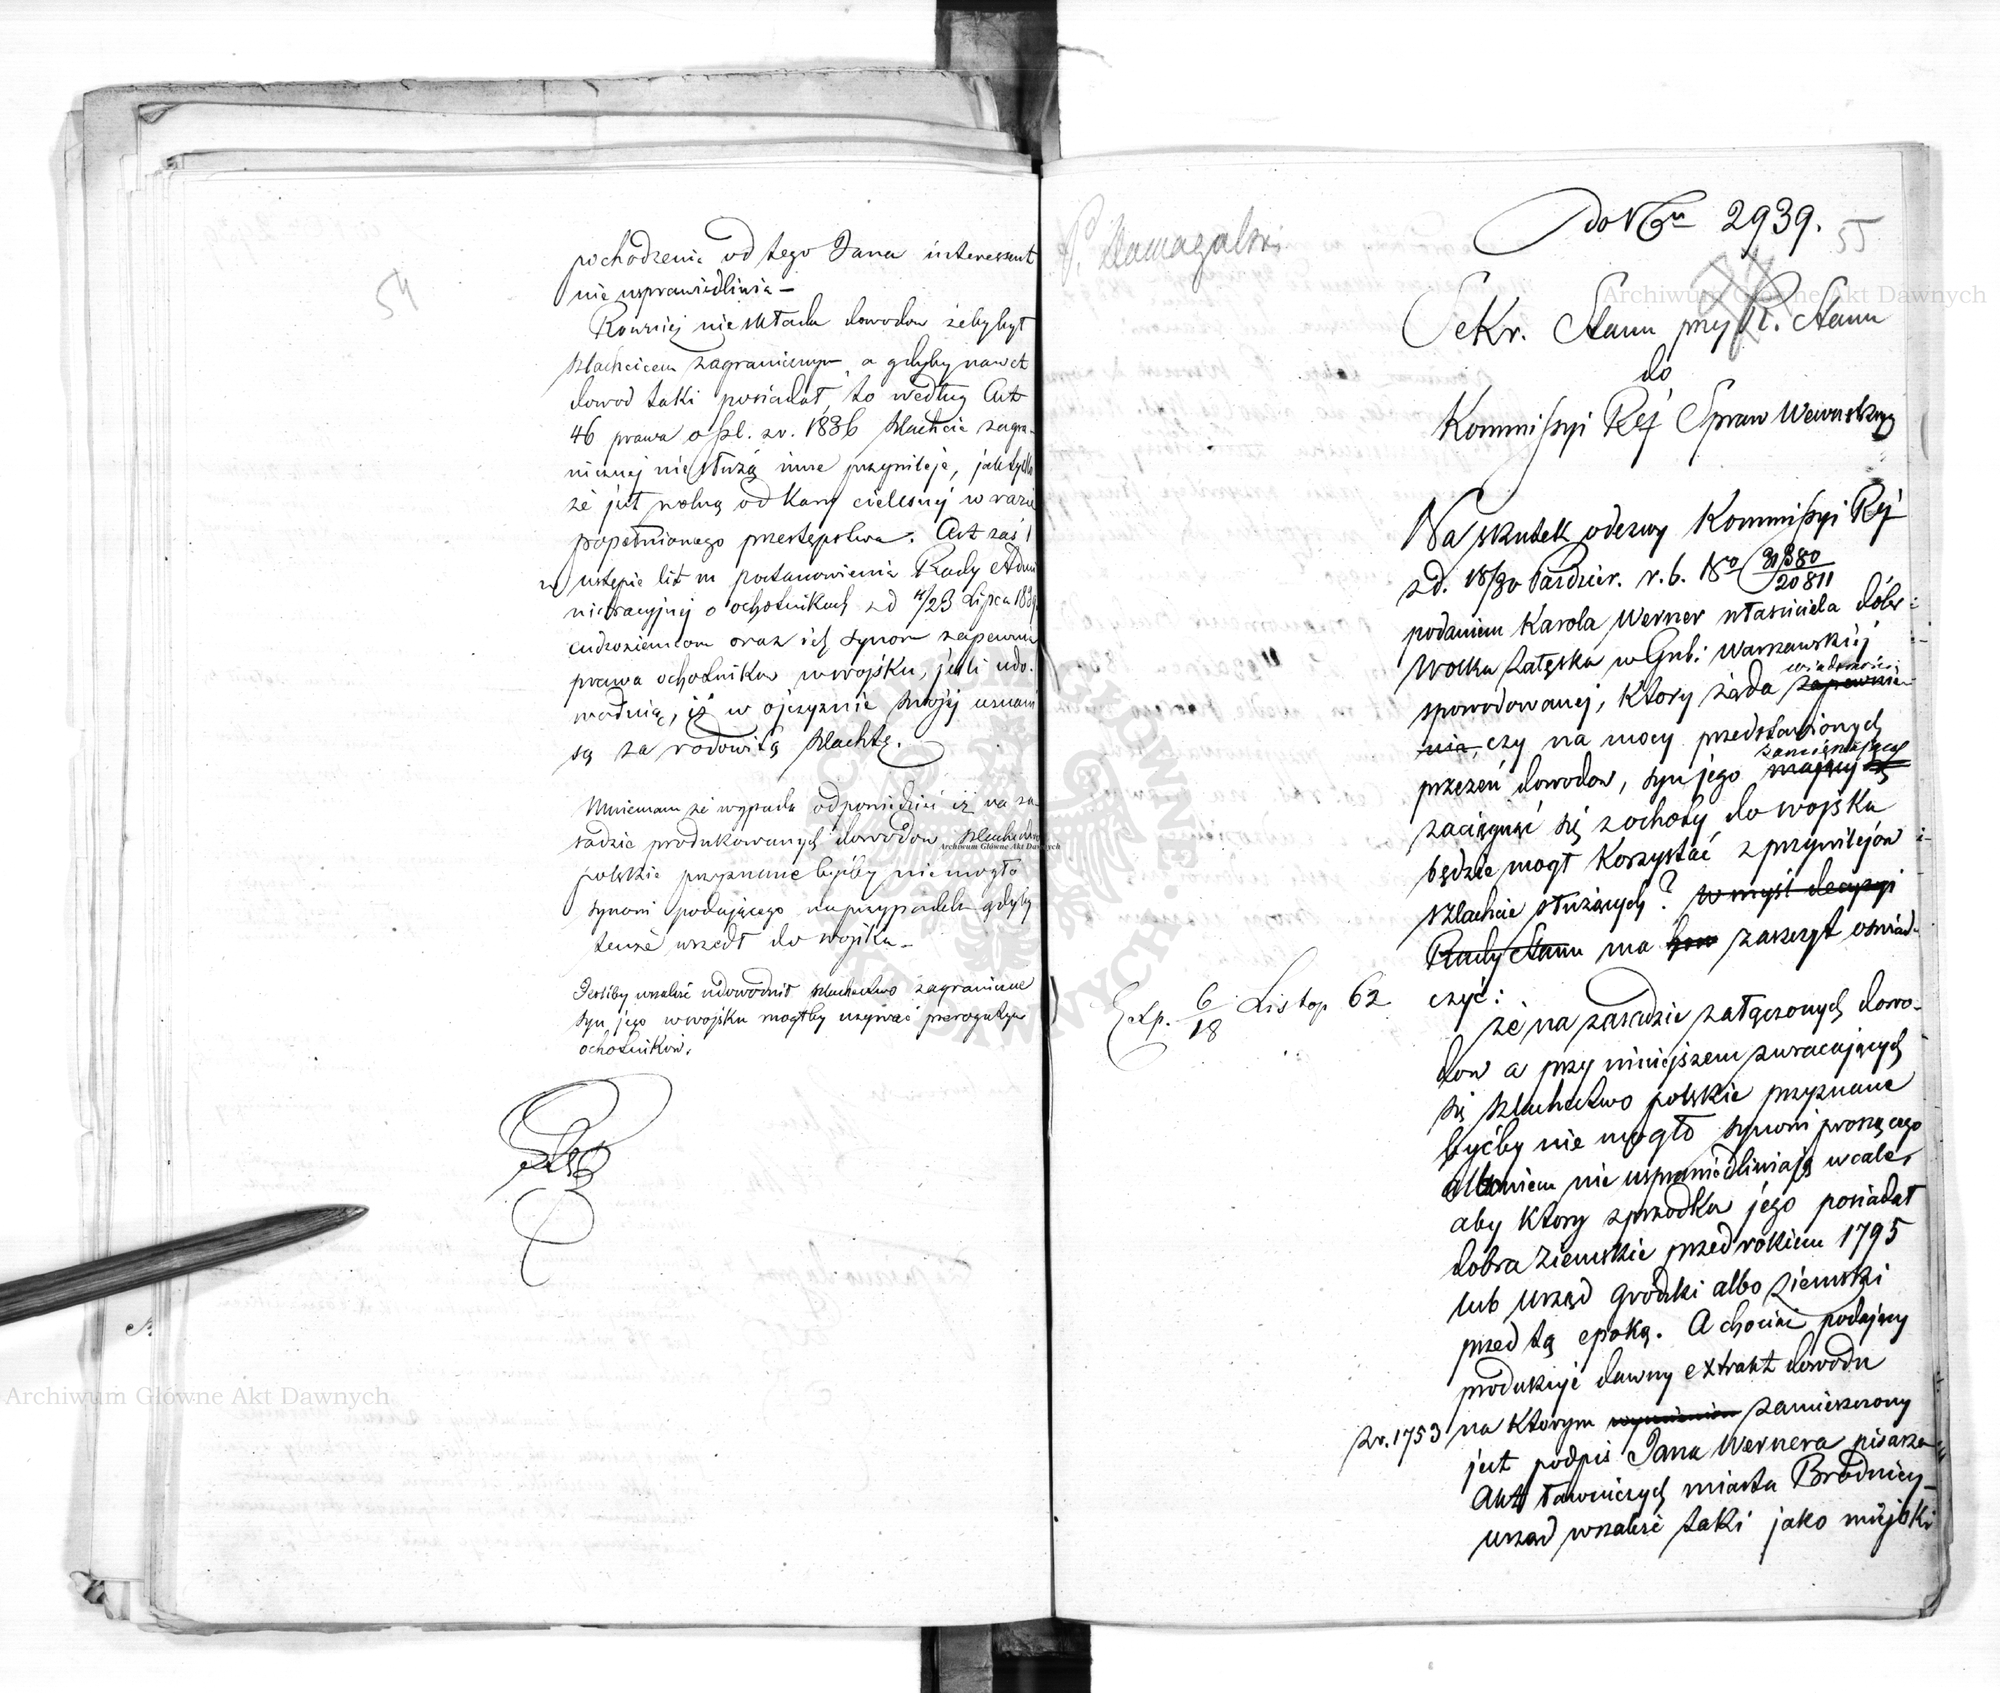 54
pochodzenia od tego Jana interessent
nie usprawiedliwia –
Rowniej nie składa dowodow żeby był
szlachcicem zagranicznym, a gdyby nawet
dowod taki posiadał, to według Art
46 prawa o szl. z r. 1836 szlachcie zagra-
nicznej nie służą inne przywileje, jak tylko
że jest wolną od kary cielesnej w razie
popełnionego przestępstwa. Art zaś 1
w ustępie lit m postanowienia Rady Admi
nistracyjnej o ochotnikach z d 11/23 Lipca 183
cudzoziemcom oraz ich synom zapewnia
prawa ochotnikow w wojsku, jeśli udo-
wodnią, iż w ojczyznie swojéj uznani
są za rodowitą szlachtę.
Mniemam że wypada odpowiedzieć iż na za
sadzie produkowanych dowodow szlachectwo
polskie przyznane byćby nie mogło
synowi podającego na przypadek gdyby
tenże wszedł do wojska –
Jeśliby wszakże udowodnił szlachectwo zagraniczne
syn jego w wojsku mogłby używać prerogatyw
ochotnikow.
P. Domagalski
do N 2939.
55
Sekr. Stanu przy R. Stanu
do
Kommissyi Rz. Spraw Wewnętrznych
Na skutek odezwy Kommissyi Rz
z d. 18/30 Paździer. r. b. 31380/20811
podaniem Karola Werner właściciela dóbr
Wolka Załęska w Gub: Warszawskiéj
spowodowanej, ktory żąda wiadomości zapewnie-
nia, czy na mocy przedstawionych
przezeń dowodow, syn jego zamierzający mający
zaciągnąć się z ochoty do wojska
będzie mogł korzystać z przywilejów
szlachcie służących? w myśl decyzyi
Rady Stanu ma zaszczyt oświad-
czyć:
Exp. 6/18 Listop 62
że na zasadzie załączonych dowo-
dow a przy niniejszem zwracających
się szlachectwo polskie przyznane
byćby nie mogło synowi proszącego
albowiem nie usprawiedliwiają wcale,
aby ktory z przodkow jego posiadał
dobra ziemskie przed rokiem 1795
lub urząd grodzki albo ziemski
przed tą epoką. A chociaż podający
produkuje dawny extrakt dowodu
z r. 1753 na ktorym wymieniem zamieszczony
jest podpis Jana Wernera pisarza
Akt ławniczych miasta Brodnicy
urząd wszakże taki jako miejski
Archiwum Główne Akt Dawnych
Archiwum Główne Akt Dawnych
Archiwum Główne Akt Dawnych